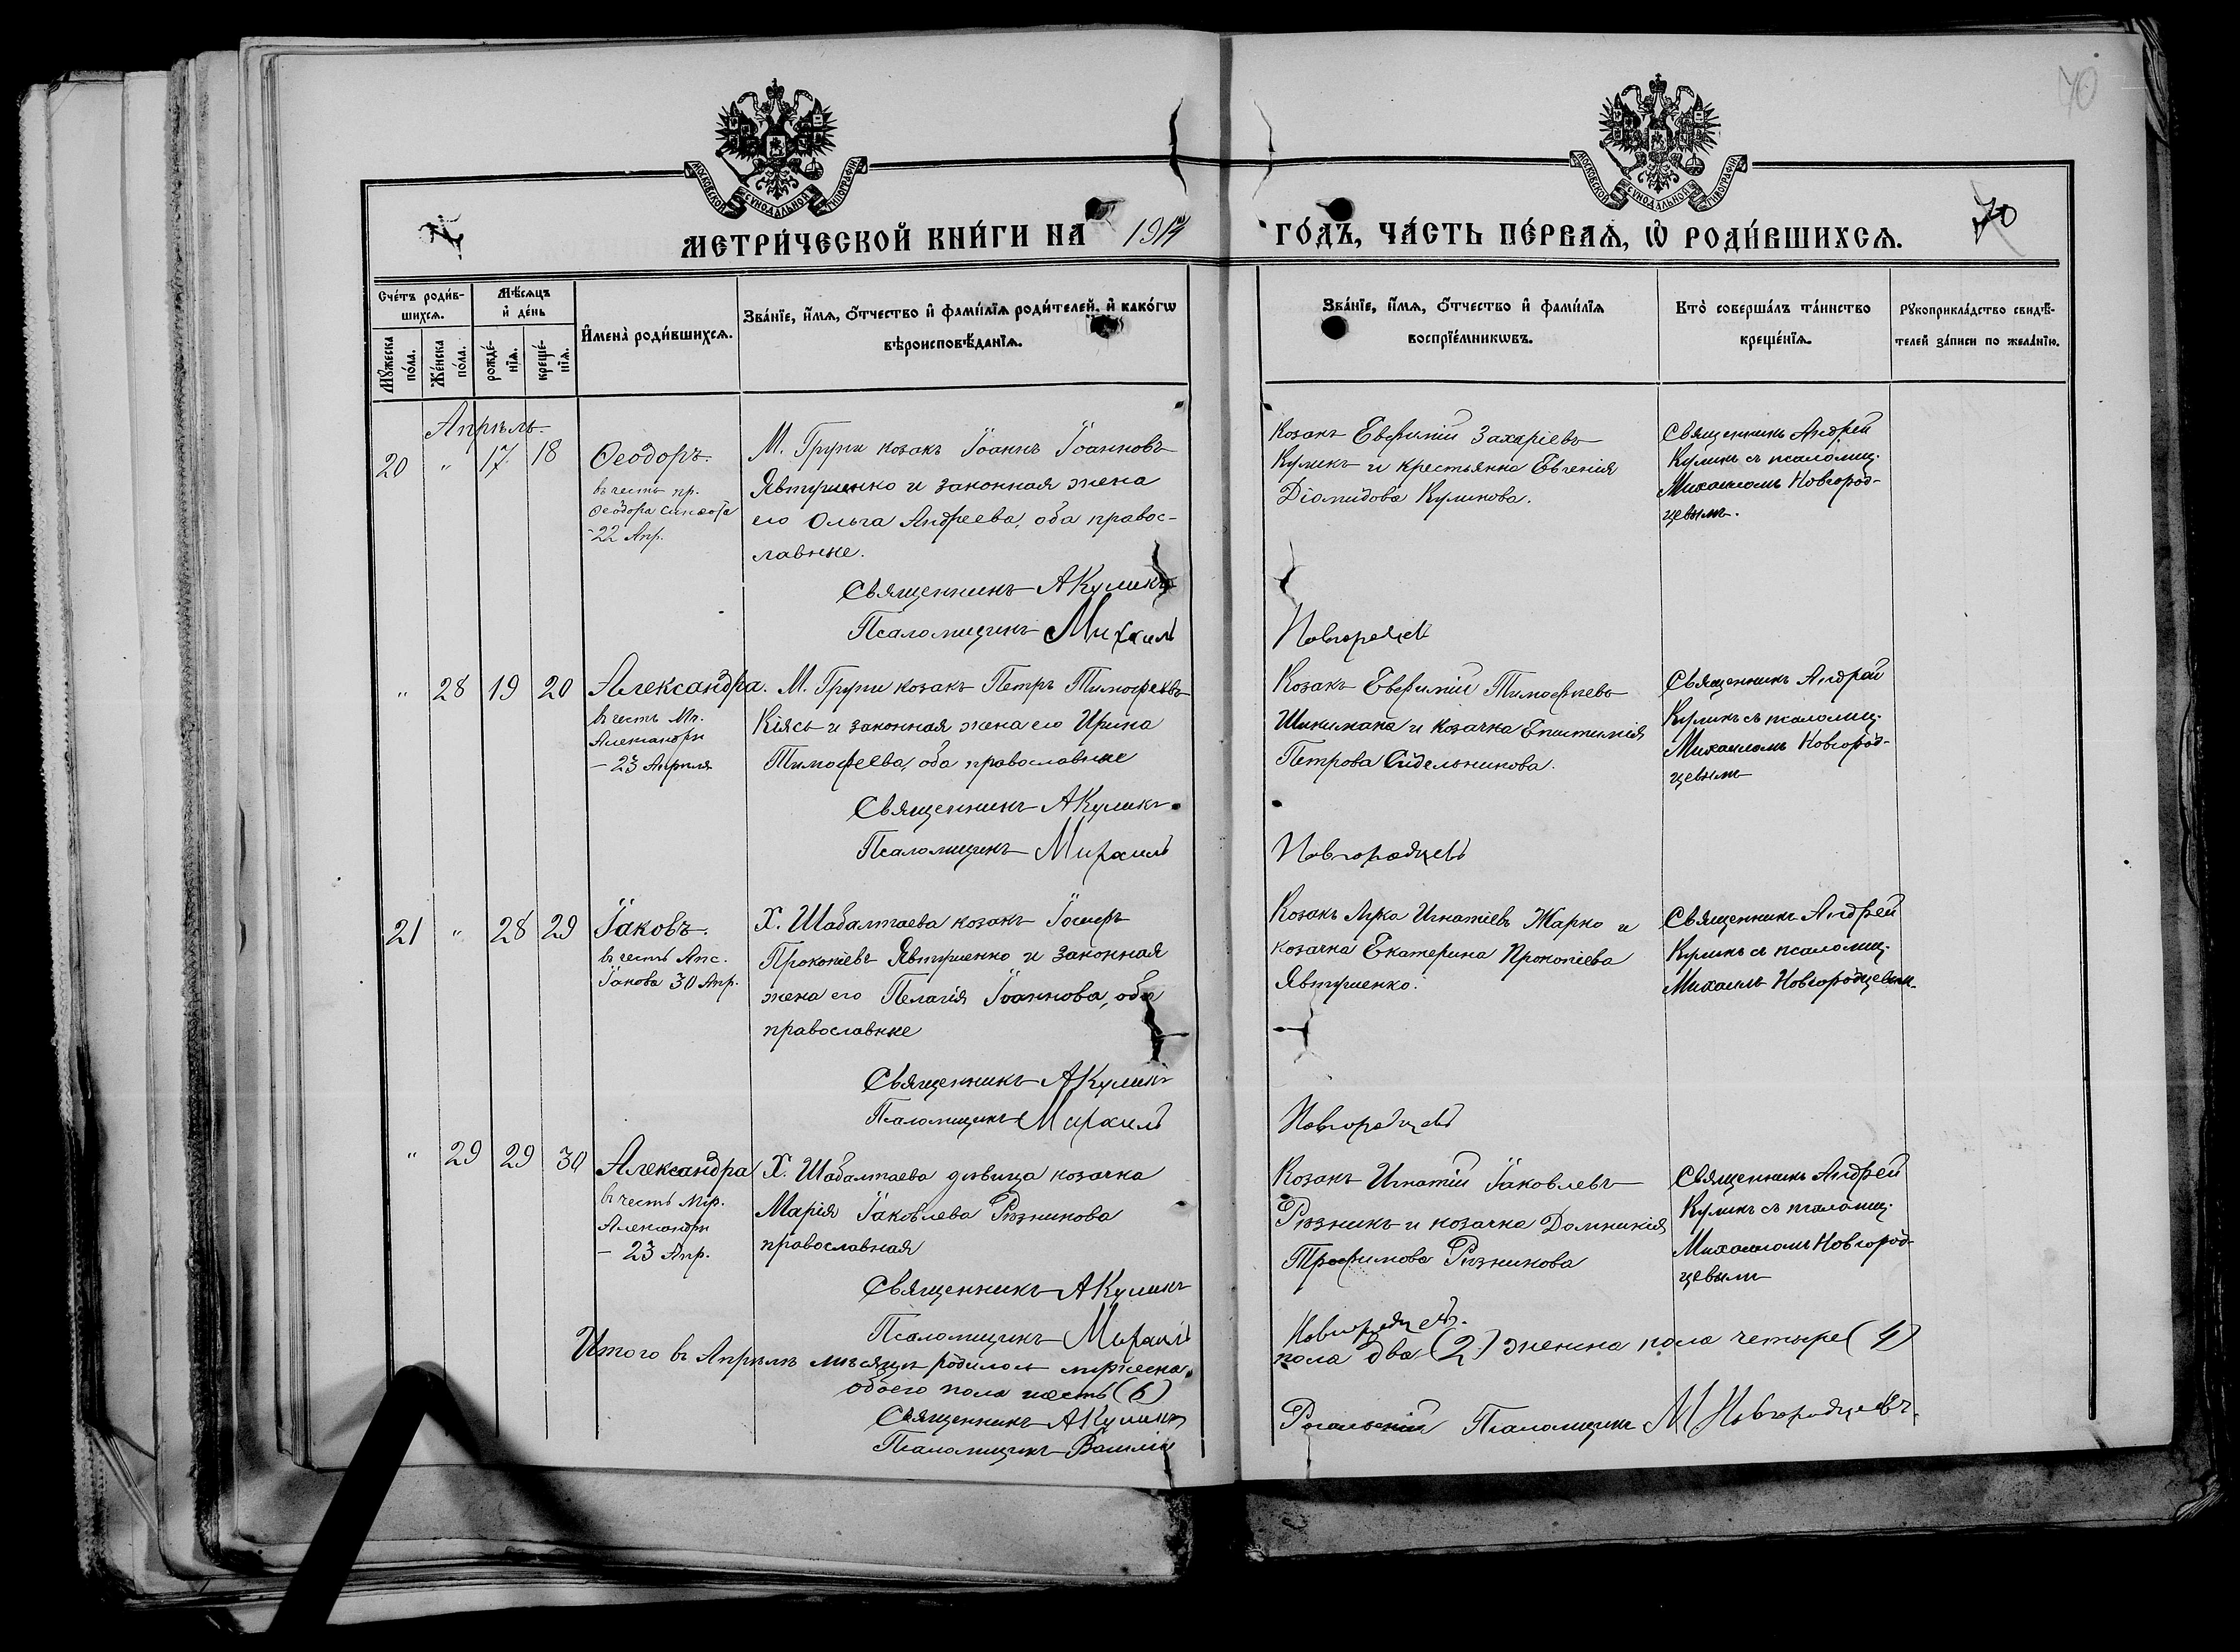 70
МОСКОВСКОЙ СѴНОДАЛЬНОЙ ТИПОГРАФІИ
МОСКОВСКОЙ СѴНОДАЛЬНОЙ ТИПОГРАФІИ
МЕТРИ́ЧЕСКОЙ КНИ́ГИ НА 1914
ГО́ДЪ, ЧА́СТЬ ПЕ́РВАѦ, Ѡ҆ РОДИ́ВШИХСѦ.
70
Сче́тъ роди́в-
шихсѧ.
Мꙋ́жеска по́ла.
Же́нска по́ла.
Мѣ́сѧцъ и҆ де́нь
рожде́-
нїѧ.
креще́-
нїѧ.
И҆мена̀ роди́вшихсѧ.
Зва́нїе, и҆́мѧ, ѻ҆́тчество и҆ фами́лїѧ роди́телей, и҆ како́гѡ
вѣроисповѣ́данїѧ.
Зва́нїе, и҆́мѧ, ѻ҆́тчество и҆ фами́лїѧ
воспрїе́мникѡвъ.
Кто̀ соверша́лъ та́инство
креще́нїѧ.
Рꙋкоприкла́дство свидѣ́-
телей за́писи по жела́нїю.
Апрѣль.
20 " 17 18
Ѳеодоръ.
въ честь пр.
Ѳеодора Сикеота
-22 Апр.
М. Груни козакъ Іоаннъ Іоанновъ
Явтушенко и законная жена
его Ольга Андреева, оба правос-
лавные.
Священникъ АКуликъ
Псаломщикъ Михаилъ
Козакъ Евфимій Захаріевъ
Куликъ и крестьянка Евгенія
Діомидова Куликова.
Новгородцевъ
Священникъ Андрей
Куликъ съ псаломщ.
Михаиломъ Новгород-
цевымъ.
" 28 19 20
Александра.
въ честь Мч.
Александры
- 23 Апрѣля
М. Груни козакъ Петръ Тимофеевъ
Кіясь и законная жена его Ирина
Тимофеева, оба православные
Священникъ АКуликъ
Псаломщикъ Михаилъ
Козакъ Евфимій Тимофѣевъ
и козачка Епистимія
Петрова Сидельникова.
Новгородцевъ
Священникъ Андрей
Куликъ съ псаломщ.
Михаиломъ Новгород-
цевымъ
21 " 28 29
Іаковъ.
въ честь Апс.
Іакова 30 Апр.
Х. Шабалтаева козакъ Іосифъ
Прокопіевъ Явтушенко и законная
жена его Пелагія Іоаннова, оба
православные
Священникъ АКуликъ
Псаломщикъ Михаилъ
Козакъ Лука Игнатіевъ Жарко и
козачка Екатерина Прокопіева
Явтушенко.
Новгородцевъ
Священникъ Андрей
Куликъ съ псаломщ.
Михаилъ Новгородцевым.
" 29 29 30
Александра
въ честь Мр.
Александры
- 23 Апр.
Х. Шабалтаева дѣвица козачка
Марія Іаковлева Рѣзникова
православная
Священникъ АКуликъ
Псаломщикъ Михаилъ
Козакъ Игнатій Іаковлевъ
Рѣзникъ и козачка Домникія
Трофимова Рѣзникова
Новгородцевъ.
Священникъ Андрей
Куликъ съ псаломщ.
Михаиломъ Новгород-
цевымъ
Итого въ Апрѣлѣ мѣсяцѣ родилось мужеска
пола два (2) женска пола четыре (4)
обоего пола шесть (6)
Священникъ АКуликъ
Псаломщикъ Василій
Рогальскій Псаломщикъ М Новгородцевъ.